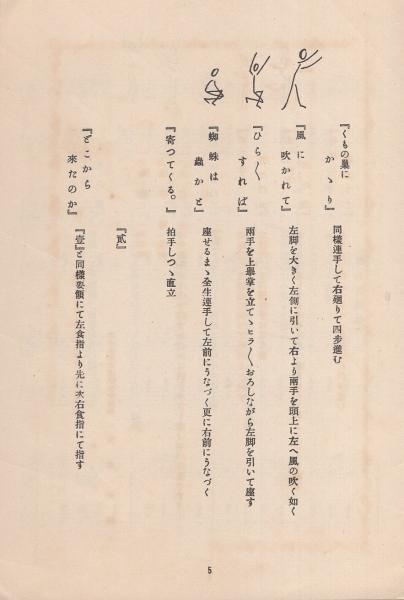 『くもの巣に
かゝり』
同樣連手して右廻りて四步進む
『風に
吹かれて』
左脚を大きく左側に引いて右より兩手を頭上に左へ風の吹く如く
『ひら〳〵
すれば』
兩手を上擧掌を立てゝヒラ〳〵おろしながら左脚を引いて座す
『蜘蛛は
蟲かと』
座せるまゝ全生連手して左前にうなづく更に右前にうなづく
『寄つてくる。』
拍手しつゝ直立
『貳』
『どこから
來たのか』
『壹』と同樣要領にて左食指より先に次右食指にて指す
5